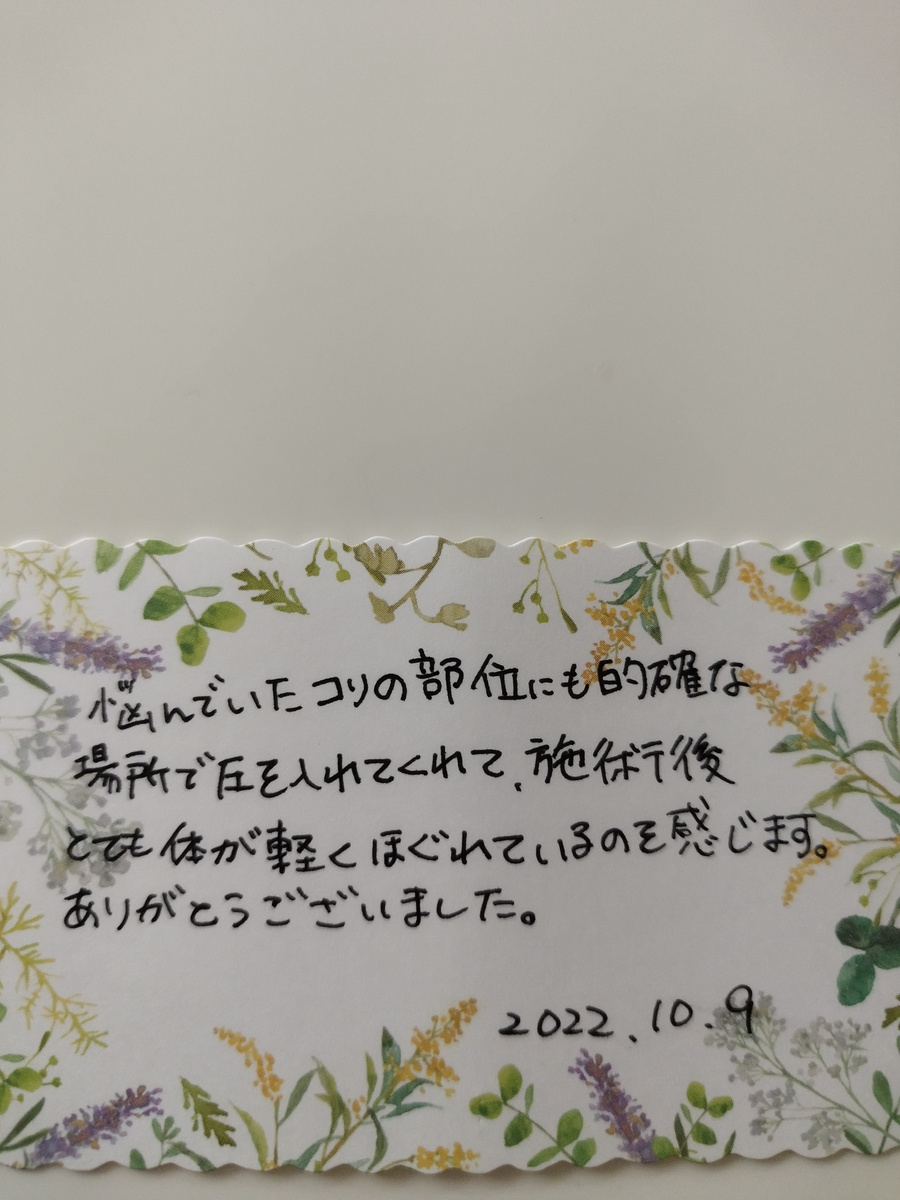 悩んでいたコリの部位にも的確な
場所で圧を入れてくれて、施術後
とても体が軽くほぐれているのを感じます。
ありがとうございました。
2022.10.9